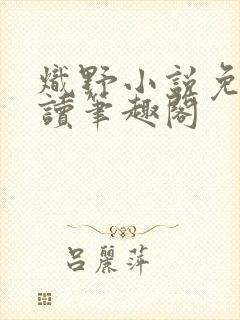 熾野小說免
讀筆趣閣
呂麗萍